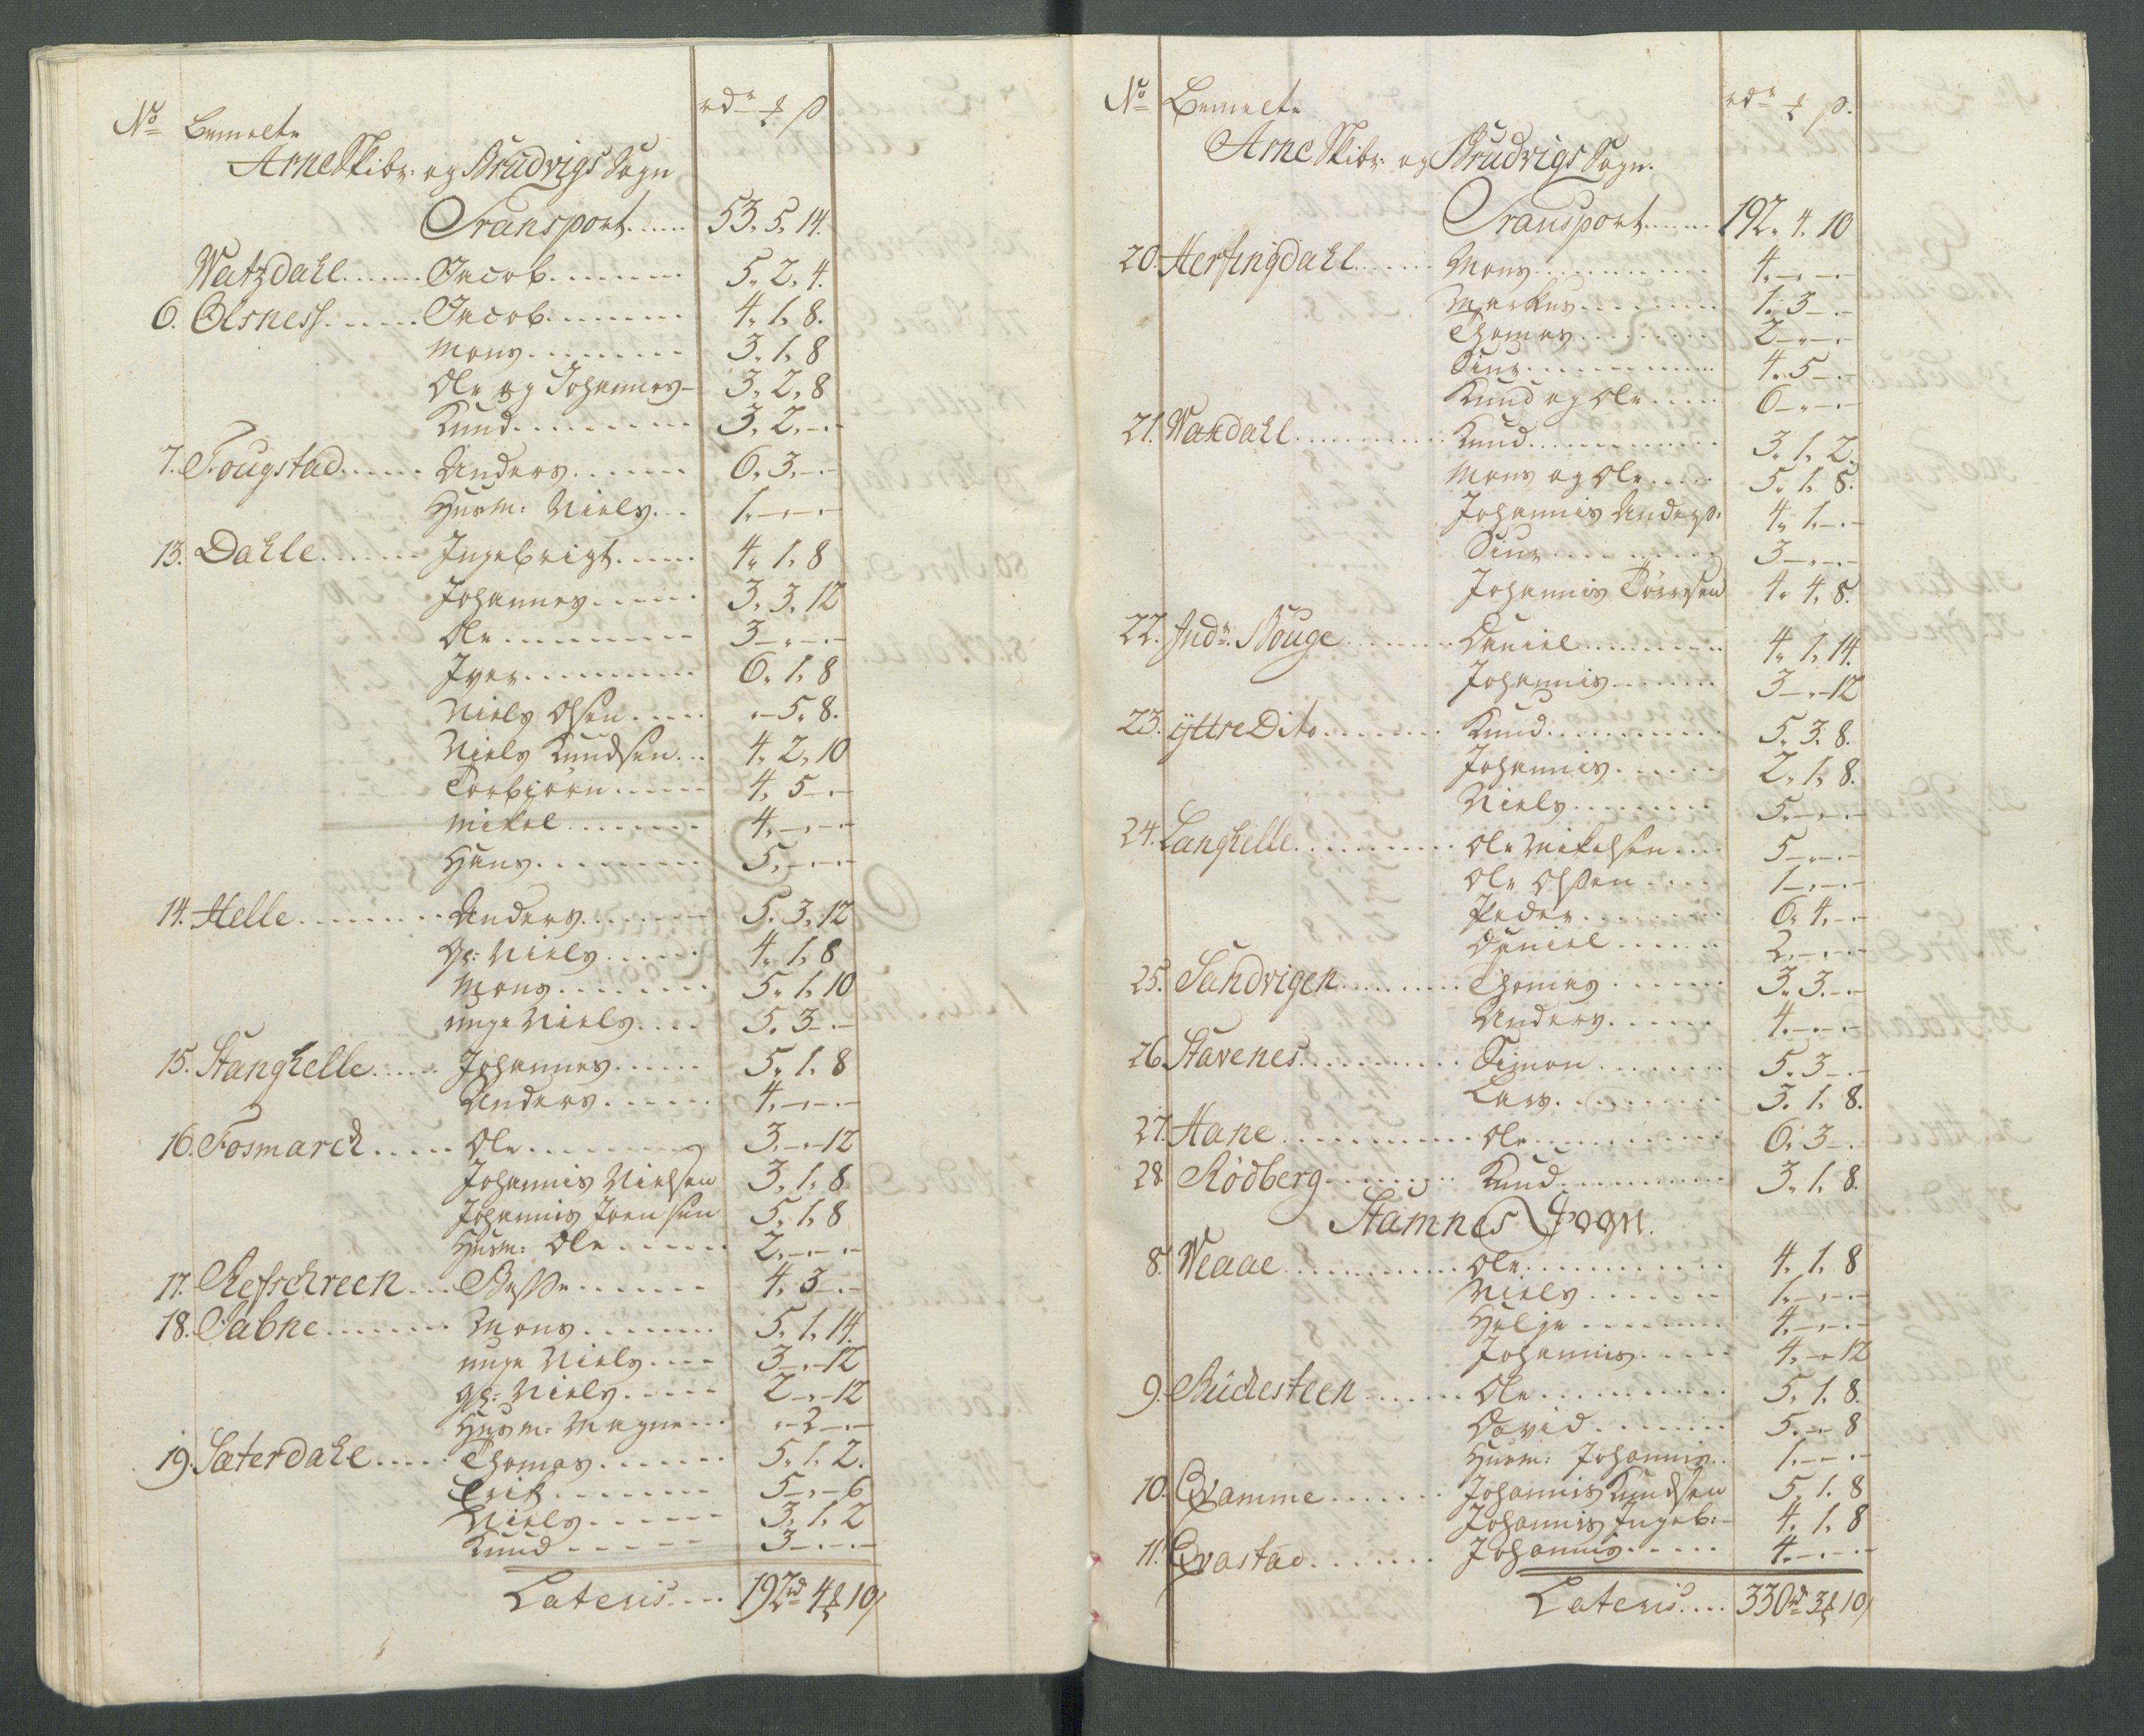 No Bemelte rdr ₰ ß
Arne Skibr: og Brudvigs Sogn
Transport...... 53. 5. 14.
Watzdahl...... Jacob....... 5. 2. 4.
6. Olsness...... Jacob....... 4. 1. 8.
Mons......... 3. 1. 8
Ole og Johannes- 3. 2. 8
Knud......... 3. 2. -.-
7. Fougstad..... Anders...... 6. 3. -.-
Husm: Niels... 1. -.-.-
13. Dahle...... Ingebrigt..... 4. 1. 8
Johannes..... 3. 3. 12
Ole......... 3 -.-.-
Iver......... 6. 1. 8
Niels Olsen..... .- 5. 8.
Niels Knudsen... 4. 2. 10
Torbiørn..... 4. 5 -.-
Mikel....... 4. -.-.-
Hans........ 5. -.-.-
14. Helle........ Anders....... 5. 3. 12
Gl: Niels...... 4. 1. 8
Mons........ 5. 1. 10
unge Niels.... 5. 3 -.-
15. Stanghelle..... Johannes...... 5. 1. 8
Anders...... 4. -.-.-
16. Fosmarch..... Ole......... 3. -.- 12
Johannis Nielsen 3. 1. 8
Johannis Joensen 5. 1. 8
Husm: Ole...... 2. -.-.-
17. Refschreen... Besse....... 4. 3 -.-
18. Sabne....... Mons....... 5. 1. 14.
unge Niels.... 3 -.- 12
gl: Niels..... 2 -.- 12
Husm: Magne... .- 2 -.-
19. Sæterdahl..... Thomas....... 5. 1. 2.
Erik........ 5 -.- 6
Niels...... 3. 1. 2
Knud..... 3 -.-.-
Lateris.... 192rd 4₰ 10ß
No Bemelte rdr ₰ ß.
Arne Skibr: og Brudvigs Sogn.
Transport..... 192. 4. 10
20. Herfingdahl...... Mons.......... 4. -.-.-
Markus........ 1. 3 -.-
Thomas........ 2 -.-.-
Siur.......... 4. 5 -.-
Knud og Ole..... 6 -.-.-
21. Wakdahl........... Knud........... 3. 1. 2.
Mons og Ole..... 5. 1. 8.
Johannis Anders: 4. 1. -.-
Siur......... 3 -.-.-
Johannis Tørresen 4. 4. 8.
22. Indr. Bouge....... Daniel......... 4. 1. 14.
Johannis....... 3 -.- 12
23. ÿttre Dito....... Knud........... 5. 3. 8.
Johannis...... 2. 1. 8.
Niels........ 5. -.-.-
24. Langhelle.......... Ole Mikelsen.... 5 -.-.-
Ole Olsen..... 1 -.-.-
Peder........ 6. 4. -.-
Daniel...... 2. -.-.-
25. Sandvigen......... Thomas....... 3. 3. -.-
Anders...... 4. -.-.-
26. Stavenes.......... Simon....... 5. 3 -.-
Lars......... 3. 1. 8.
27. Hane............ Ole........... 6. 3 -.-
28. Rödberg........ Knud.......... 3. 1. 8.
Stamnes Sogn.
8. Weaae........... Ole........... 4. 1. 8
Niels....... 1. -.-.-
Helje........ 4. -.-.-
Johannis..... 4. -.- 12
9. Rüchesteen....... Ole.......... 5. 1. 8.
David....... 5. -.- 8
Husm: Johannis.. 1. -.-.-
10. Qvamme....... Johannis Knudsen 5. 1. 8
Johannis Ingeb:- 4. 1. 8
11. Qvastad....... Johannis..... 4. -.-.-
Lateris.... 330rd 3₰ 10ß